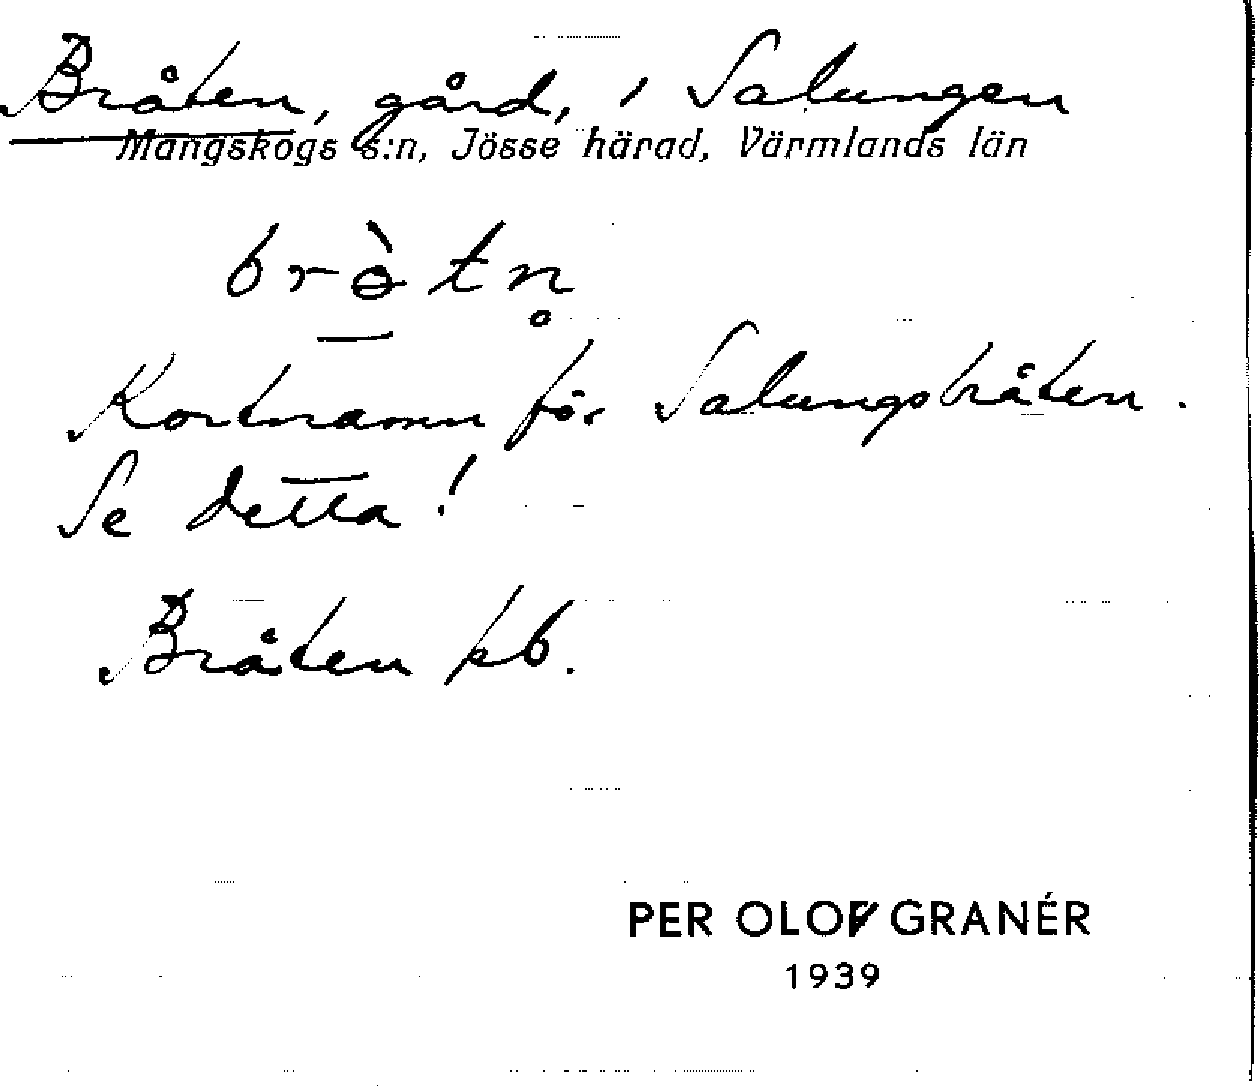 Bråten, gård, i Salungen
Mangskogs s:n, Jösse härad, Värmlands län
Kortnamn för Salungsbråten.
Se detta!
Bråten kb.
PER OLOF GRANÉR
1939